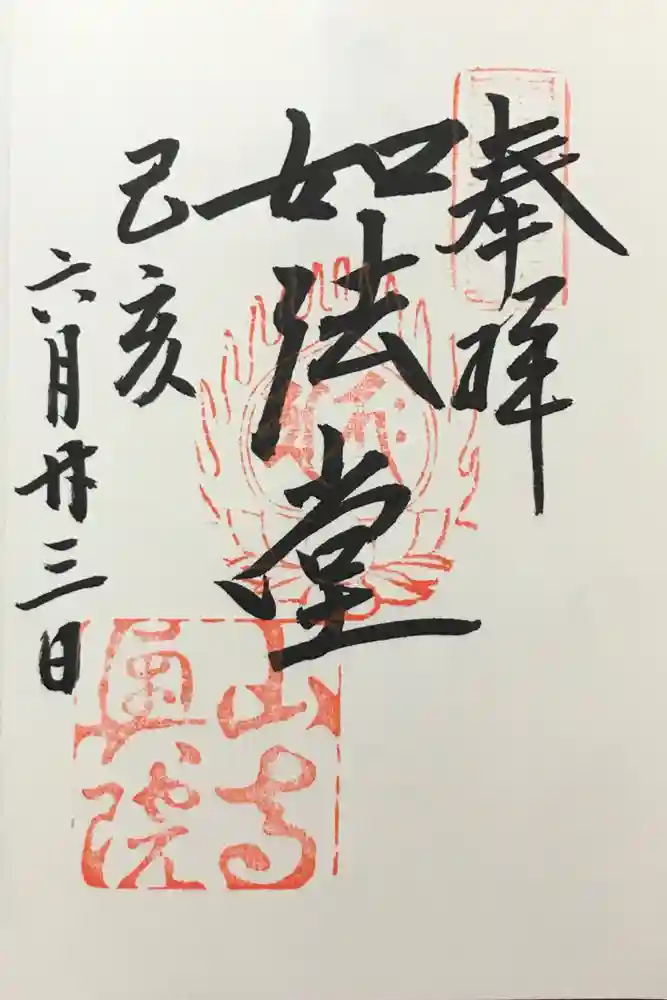 奉拝
如法堂
己亥
六月廿三日
山寺